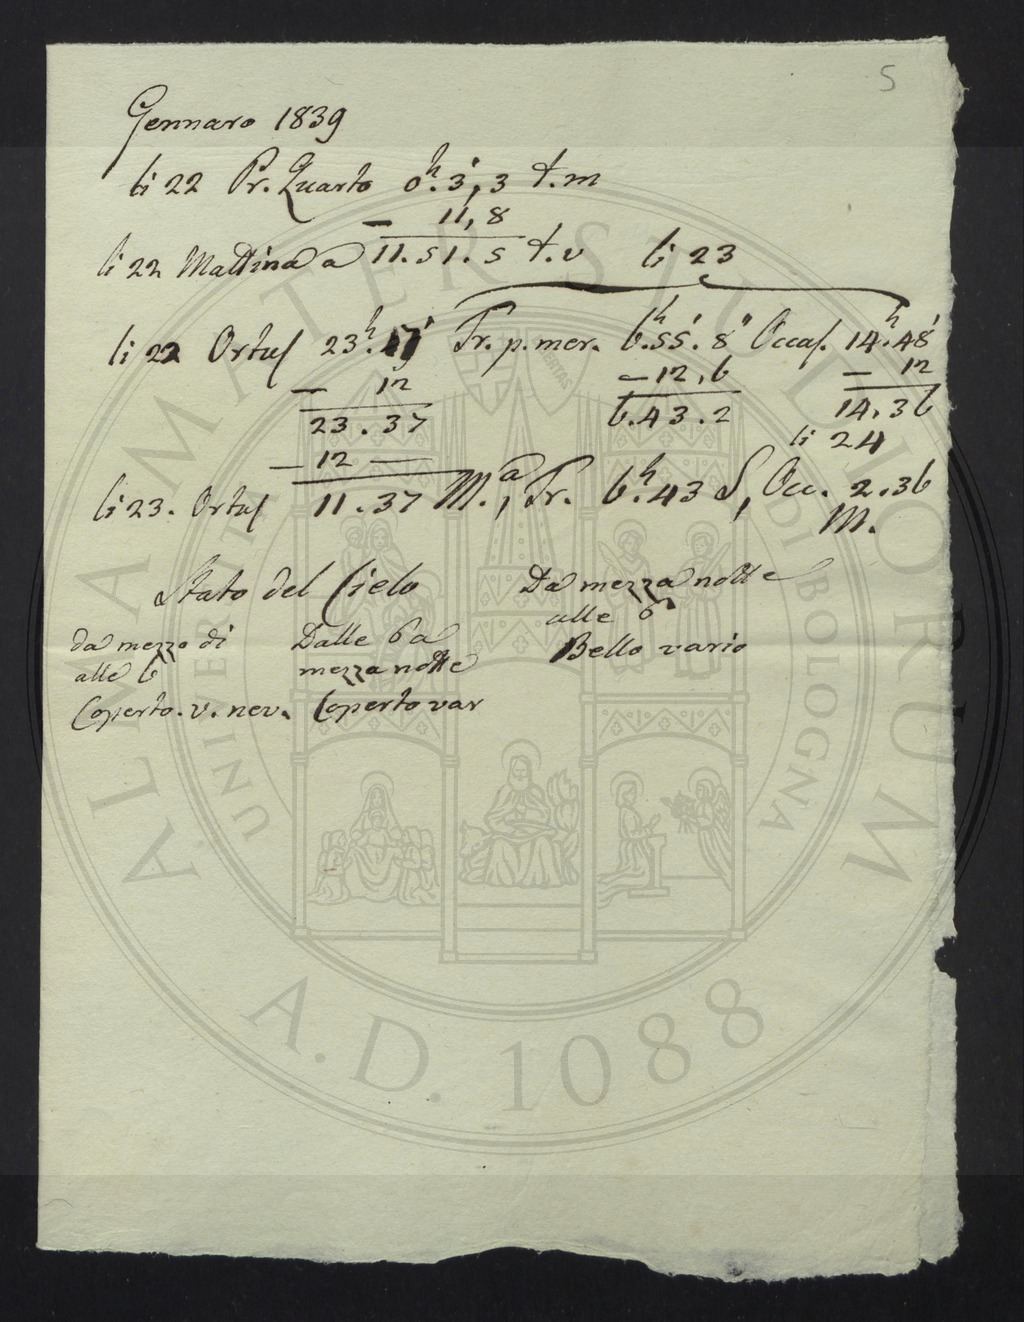 5
Gennaro 1839
li 22 Pr. Quarto 0h. 3', 3 t.m
– 11,8
li 22 Mattina a 11. 51. 5 t.v li 23
li 22 Ortus Tr. p. mer. 6h. 55'. 8" Occas. 14h. 48'
– 12 – 12,6 – 12
23. 37 6. 43. 2 14. 36
– 12 — li 24
li 23. Ortus 11. 37 M.a, Tr. 6h. 43 S, Occ. 2. 36
M.
Stato del Cielo
da mezzo di
alle 6
Coperto. v. nev.
Dalle 6 a
mezza notte
Coperto var
Da mezza notte
alle 6
Bello vario
ALMA MATER STUDIORUM
UNIVERSITÀ DI BOLOGNA
A.D. 1088